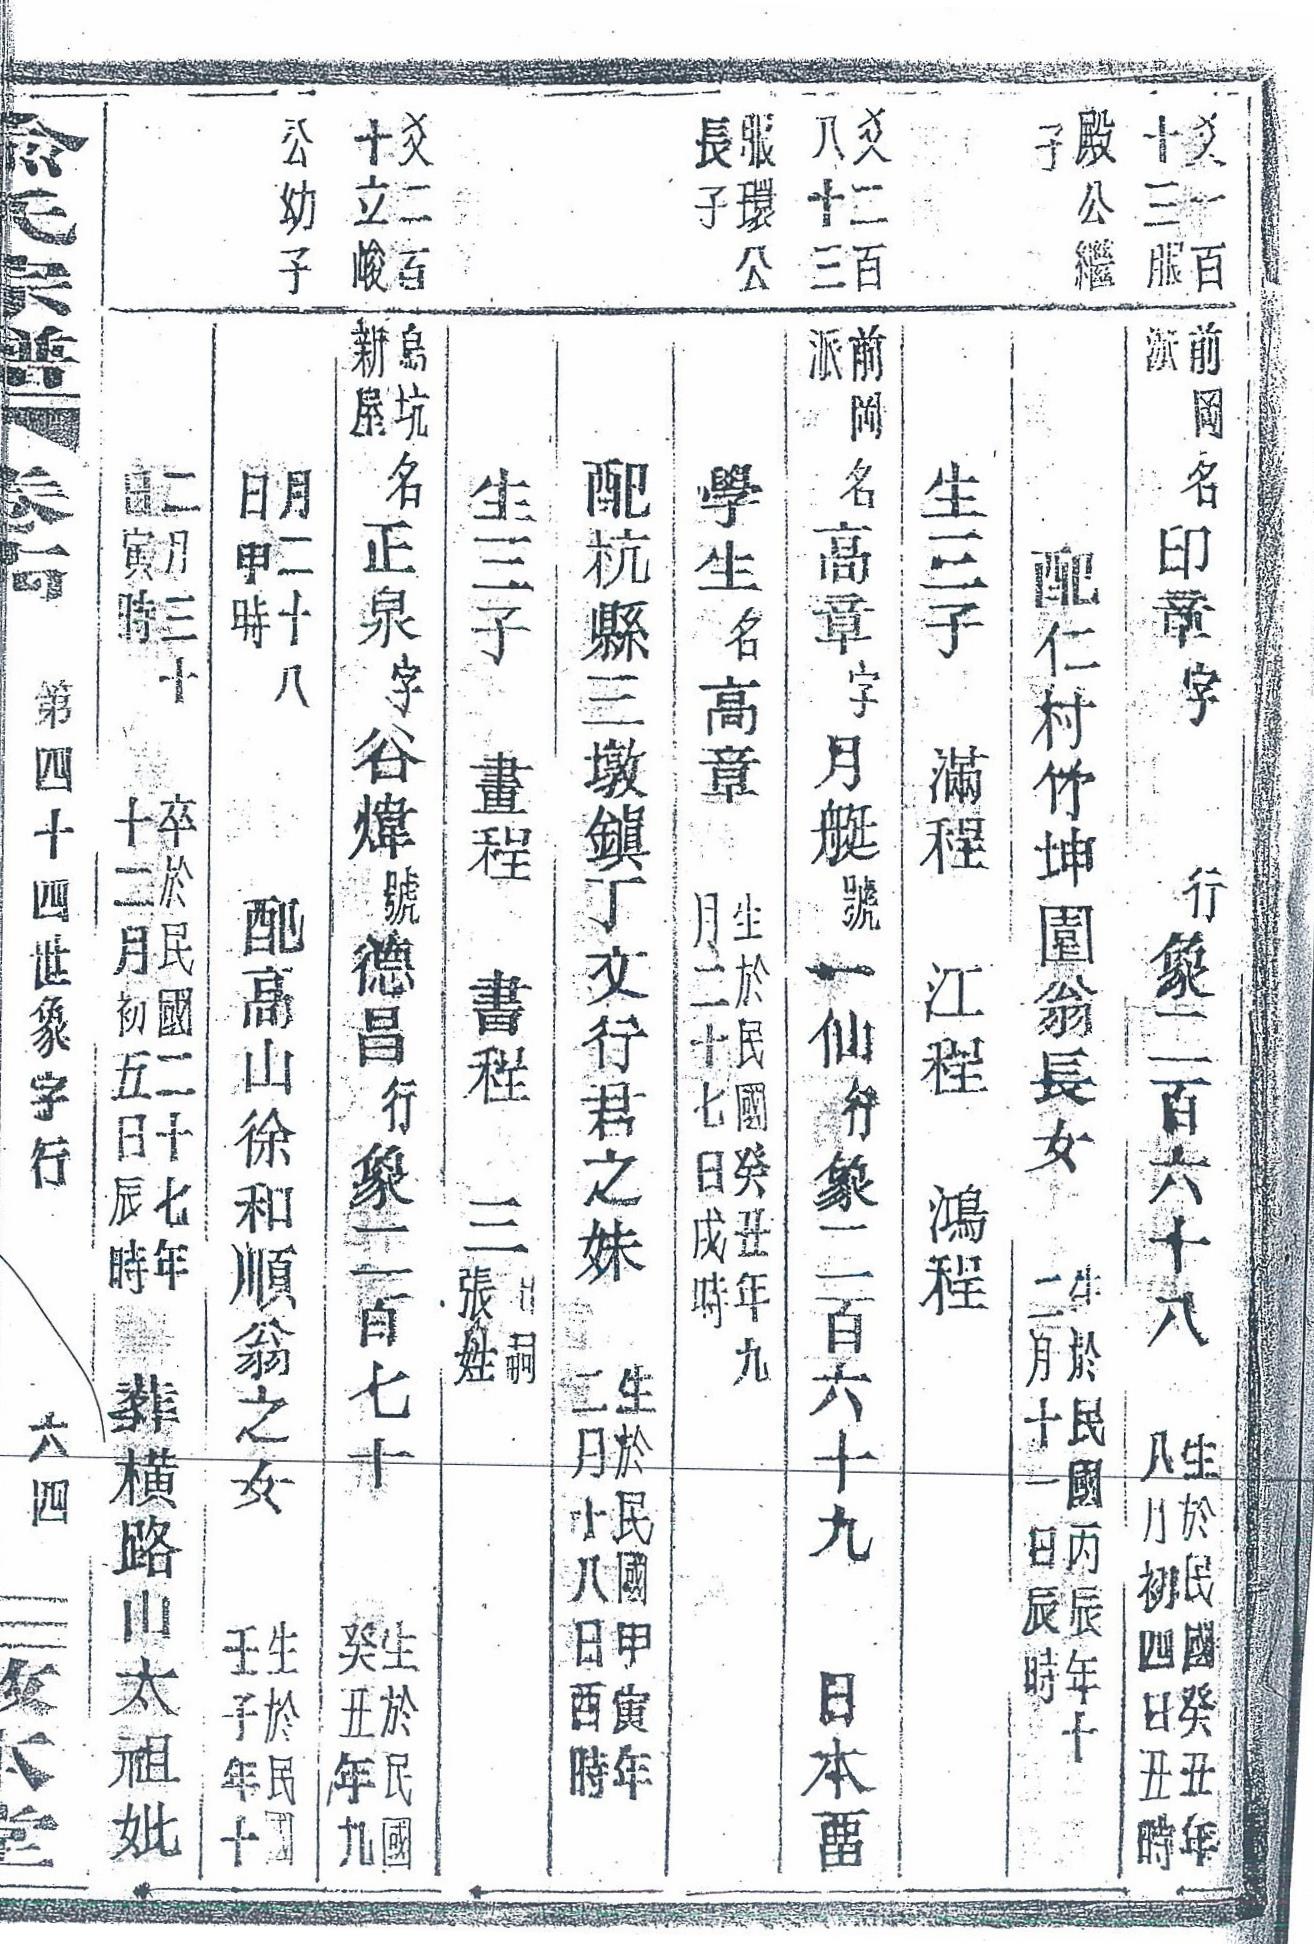 爻一百
十三服
殿公繼
子
前岡
派
名印章字 行象二百六十八
生於民國癸丑年
八月初四日丑時
配仁村竹坤園翁長女
生於民國丙辰年十
二月十一日辰時
生三子 滿程 江程 鴻程
爻二百
八十三
服環公
長子
前岡
派
名高章字月艇號一仙行象二百六十九 日本畱
學生名高章
生於民國癸丑年九
月二十七日戌時
配杭縣三墩鎮丁文行君之妹
生於民國甲寅年
二月十八日酉時
生三子 畫程 書程 三
嗣
張姓
爻二百
十立峻
公幼子
塢坑
新屋
名正泉字谷煒號德昌行象二百七十
生於民國
癸丑年九
月二十八
日申時
配高山徐和順翁之女
生於民國
壬子年十
二月三十
日寅時
卒於民國二十七年
十二月初五日辰時
葬橫路山太祖妣
俞氏宗譜 卷 第四十四世象字行 六四 敘本堂